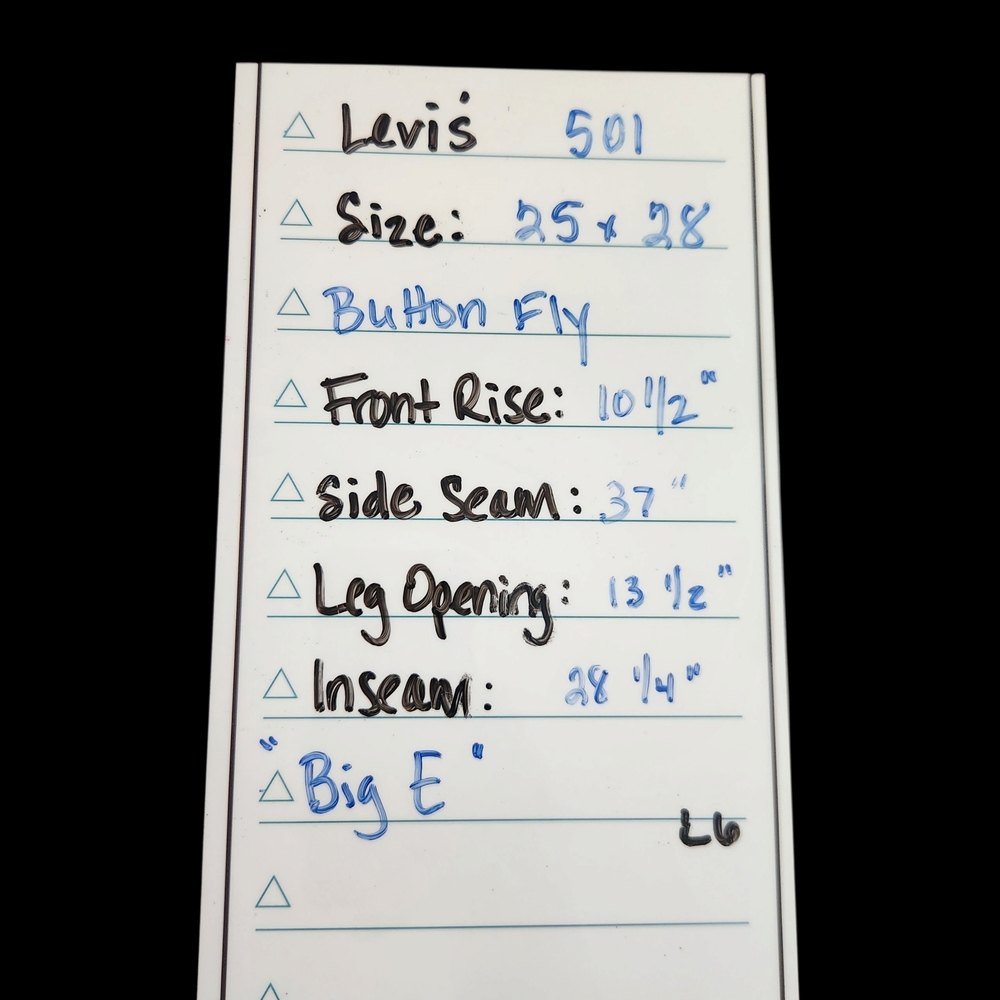 Levi's 501
Size: 25 x 28
Button Fly
Front Rise: 10 1/2"
Side Seam: 37"
Leg Opening: 13 1/2"
Inseam: 28 1/4"
"Big E"
L6